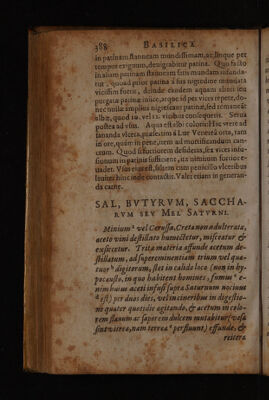 388 BASILICA
in patinam stanneam mundissimam, ac sinque per
tempus exiguum, denigrabitur patina. Quo facto
in aliam patinam stanneam satis mundam infunda-
tur, quoad prior patina à sua nigredine mundata
vicissim fuerit, deinde eandem aquam alteri seu
purgatæ patinæ iniice, atque id per vices repete, do-
nec nullæ amplius nigrescant patinæ, sed remaneāt
albæ, quod 10. vel 12. vicibus consequeris. Serua
postea ad vsus. Aqua est albi coloris: Hæc vtere ad
sananda vlcera, præsertim à Lue Venerea orta, tam
in ore, quàm in pene, item ad mortificandum can-
crum. Quod si fortiorem desideras, sex vices infu-
sionum in patinis sufficient, ita vt ipsum fortior e-
uadet. Vsus eius est, si
leniter hinc inde contactis. Valet etiam in generan-
da carne.
SAL, BVTYRVM, SACCHA-
RVM SEV MEL SATVRNI.
Minium vel Cerussa, Creta non adulterata,
aceto vini destillato humectetur, misceatur &
exsiccetur. Tritæ materiæ affunde acetum de-
stillatum, ad supereminentiam trium vel qua-
tuor digitorum, stet in calido loco (non in hy-
pocausto, in quo habitent homines, fumus e-
nim huius aceti infusi supra Saturnum nocivus
est) per duos dies, vel in cineribus in digestio-
ne quater quotidie agitando, & acetum in colo-
rem flauum ac saporem dulcem mutabitur (vasa
sint vitrea, nam terrea perfluunt) effunde, &
reitera